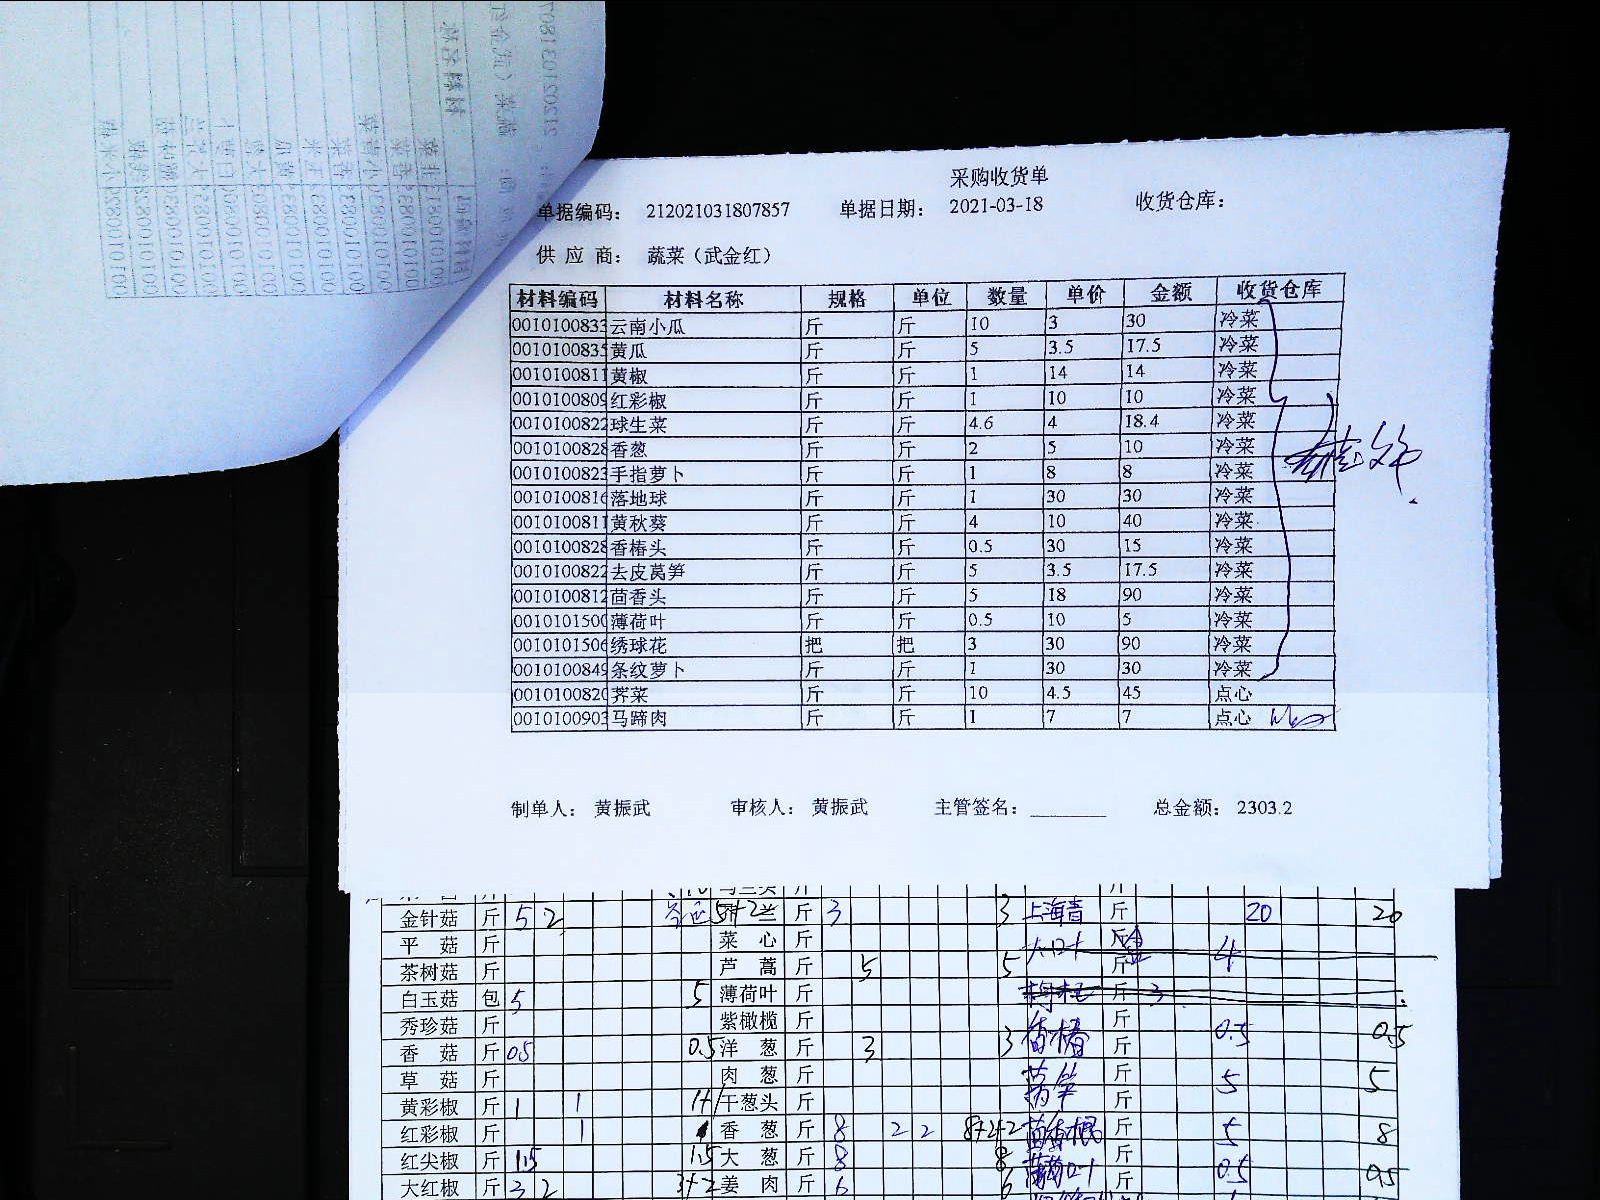 采购收货单
单据编码： 212021031807857 单据日期： 2021-03-18 收货仓库：
供 应 商： 蔬菜（武金红）
材料编码 材料名称 规格 单位 数量 单价 金额 收货仓库
0010100833 云南小瓜 斤 斤 10 3 30 冷菜
0010100835 黄瓜 斤 斤 5 3.5 17.5 冷菜
0010100811 黄椒 斤 斤 1 14 14 冷菜
0010100809 红彩椒 斤 斤 1 10 10 冷菜
0010100822 球生菜 斤 斤 4.6 4 18.4 冷菜
0010100828 香葱 斤 斤 2 5 10 冷菜
0010100823 手指萝卜 斤 斤 1 8 8 冷菜
0010100816 落地球 斤 斤 1 30 30 冷菜
0010100811 黄秋葵 斤 斤 4 10 40 冷菜
0010100828 香椿头 斤 斤 0.5 30 15 冷菜
0010100822 去皮莴笋 斤 斤 5 3.5 17.5 冷菜
0010100812 茴香头 斤 斤 5 18 90 冷菜
0010101500 薄荷叶 斤 斤 0.5 10 5 冷菜
0010101506 绣球花 把 把 3 30 90 冷菜
0010100849 条纹萝卜 斤 斤 1 30 30 冷菜
0010100820 荠菜 斤 斤 10 4.5 45 点心
0010100903 马蹄肉 斤 斤 1 7 7 点心
制单人： 黄振武 审核人： 黄振武 主管签名： 总金额： 2303.2
金针菇 斤 5 2 5+2 兰 斤 3 3 上海青 斤 20 20
平 菇 斤 菜 心 斤 斤 4
茶树菇 斤 芦 蒿 斤 5 5 斤
白玉菇 包 5 5 薄荷叶 斤 斤 3
秀珍菇 斤 紫橄榄 斤 斤
香 菇 斤 0.5 0.5 洋 葱 斤 3 3 香椿 斤 0.5 0.5
草 菇 斤 肉 葱 斤 莴笋 斤 5 5
黄彩椒 斤 1 1 1+1 干葱头 斤 斤
红彩椒 斤 1 香 葱 斤 8 2 2 8+2+2 茴香根 斤 5 8
红尖椒 斤 1.5 1.5 大 葱 斤 8 8 斤 0.5 0.5
大红椒 斤 3 2 3+2 姜 肉 斤 6 6 斤